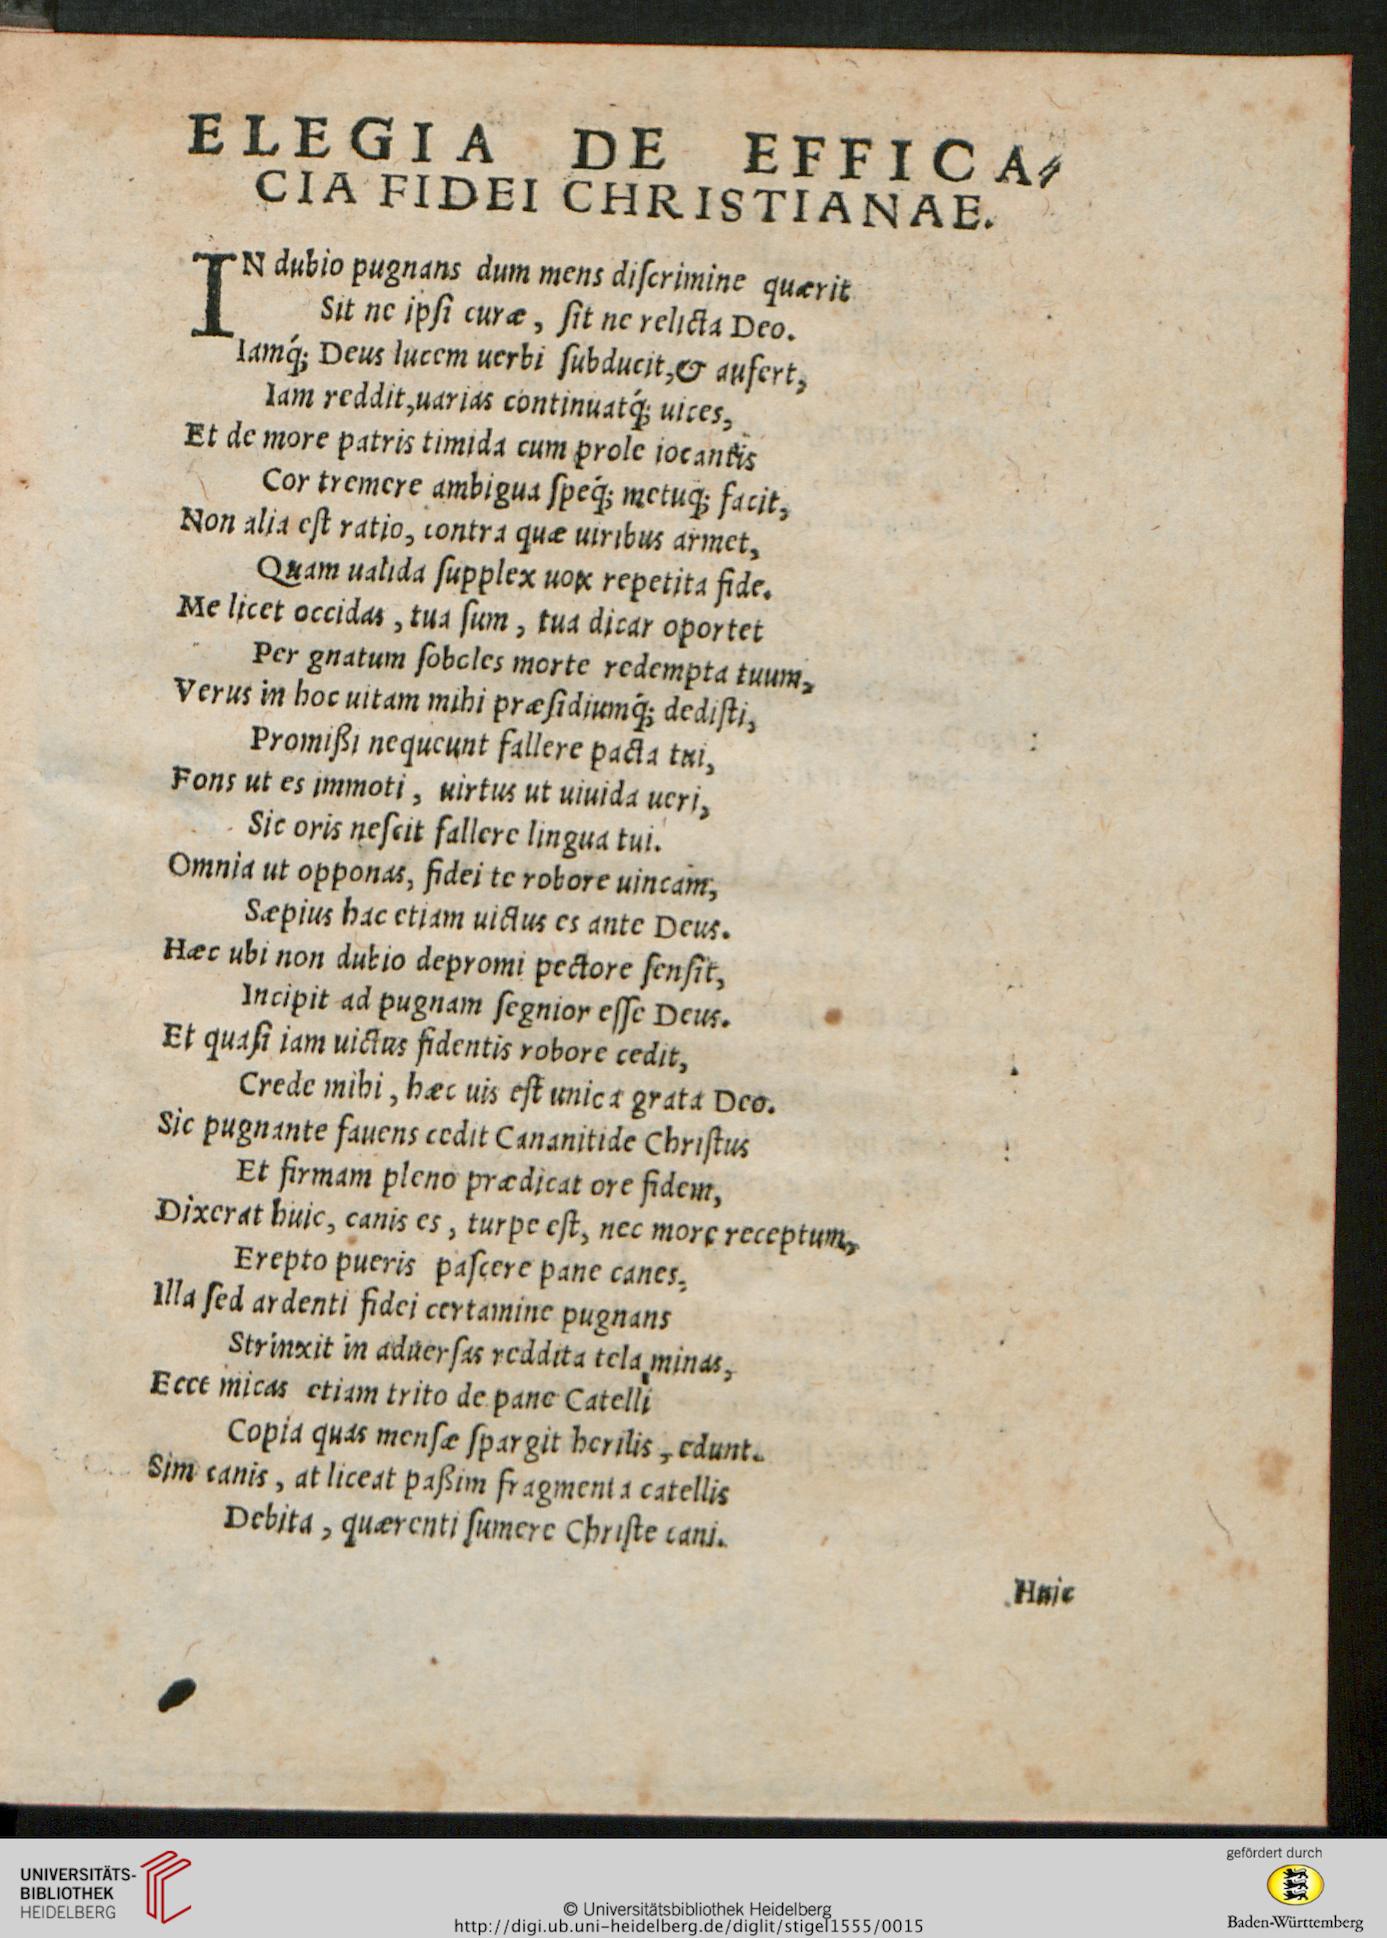 ELEGIA DE EFFICA⸗
CIA FIDEI CHRISTIANAE.
IN dubio pugnans dum mens diſcrimine quærit
Sit ne ipſi curæ, ſit ne relicta Deo.
Iamq́; Deus lucem uerbi ſubducit,& aufert,
Iam reddit,uarias continuatq́; uices,
Et de more patris timida cum prole iocantis
Cor tremere ambigua ſpeq́; metuq́; facit,
Non alia eſt ratio, contra quæ uiribus armet,
Quam ualida ſupplex uox repetita fide.
Me licet occidas, tua ſum, tua dicar oportet
Per gnatum ſoboles morte redempta tuum,
Verus in hoc uitam mihi præſidiumq́; dediſti,
Promißi nequeunt fallere pacta tui,
Fons ut es immoti, uirtus ut uiuida ueri,
Sic oris neſcit fallere lingua tui.
Omnia ut opponas, fidei te robore uincam,
Sæpius hac etiam uictus es ante Deus.
Hæc ubi non dubio depromi pectore ſenſit,
Incipit ad pugnam ſegnior eſſe Deus.
Et quaſi iam uictus fidentis robore cedit,
Crede mihi, hæc uis eſt unica grata Deo.
Sic pugnante fauens cedit Cananitide Chriſtus
Et firmam pleno prædicat ore fidem,
Dixerat huic, canis es, turpe eſt, nec more receptum,
Erepto pueris paſcere pane canes;
Illa ſed ardenti fidei certamine pugnans
Strinxit in aduerſas reddita tela minas,
Ecce micas etiam trito de pane Catelli
Copia quas menſæ ſpargit herilis, edunt.
Sim canis, at liceat paßim fragmenta catellis
Debita, quærenti ſumere Chriſte cani.
Huic
UNIVERSITÄTS-
BIBLIOTHEK
HEIDELBERG
© Universitätsbibliothek Heidelberg
http://digi.ub.uni-heidelberg.de/diglit/stigel1555/0015
gefördert durch
Baden-Württemberg